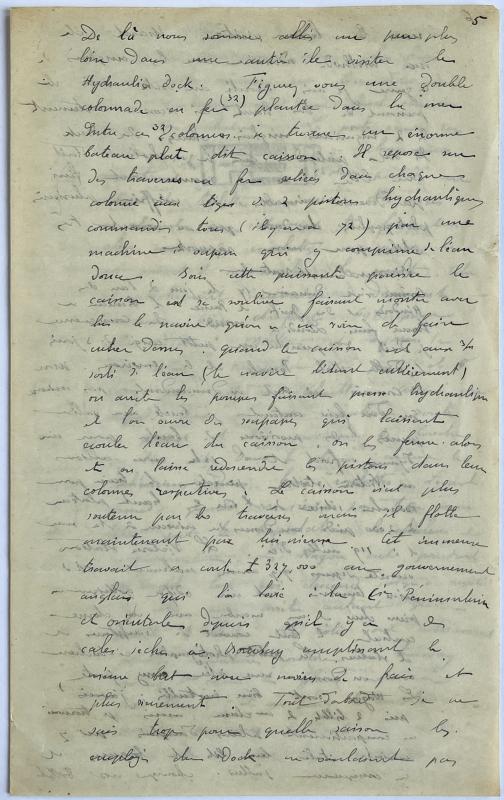 5
De là nous sommes allés un peu plus
loin dans une autre île visiter le
Hydraulic Dock. Figurez vous une double
colonnade en fer (32) plantée dans la mer
Entre ces 32 colonnes se trouve un énorme
bateau plat dit caisson. Il repose sur
des traverses en fer reliées dans chaque
colonne aux tiges de 2 pistons hydrauliques
commandés tous (il y en a 72) par une
machine à vapeur qui y comprime de l'eau
douce. Sous cette puissante pression le
caisson est se soulève faisant monter avec
lui le navire qu'on a eu soin de faire
entrer dans. quand le caisson est aux 3/4
sorti de l'eau (le navire l'étant entièrement)
on arrête les pompes faisant presse hydraulique
et l'on ouvre des soupapes qui laissent
écouler l'eau du caisson. on les ferme alors
et on laisse redescendre les pistons dans leurs
colonnes respectives. Le caisson n'est plus
soutenu par les traverses mais il flotte
maintenant par lui même. Cet immense
travail a coûté £ 327,000 au gouvernement
anglais qui l'a loué à la Cie Péninsulaire
et orientale depuis qu'il y a des
cales sèches à Bombay remplissant le
même but avec moins de frais et
plus sûrement Tout d'abord je ne
sais trop pour quelle raison les
employés du Dock ne voulaient pas